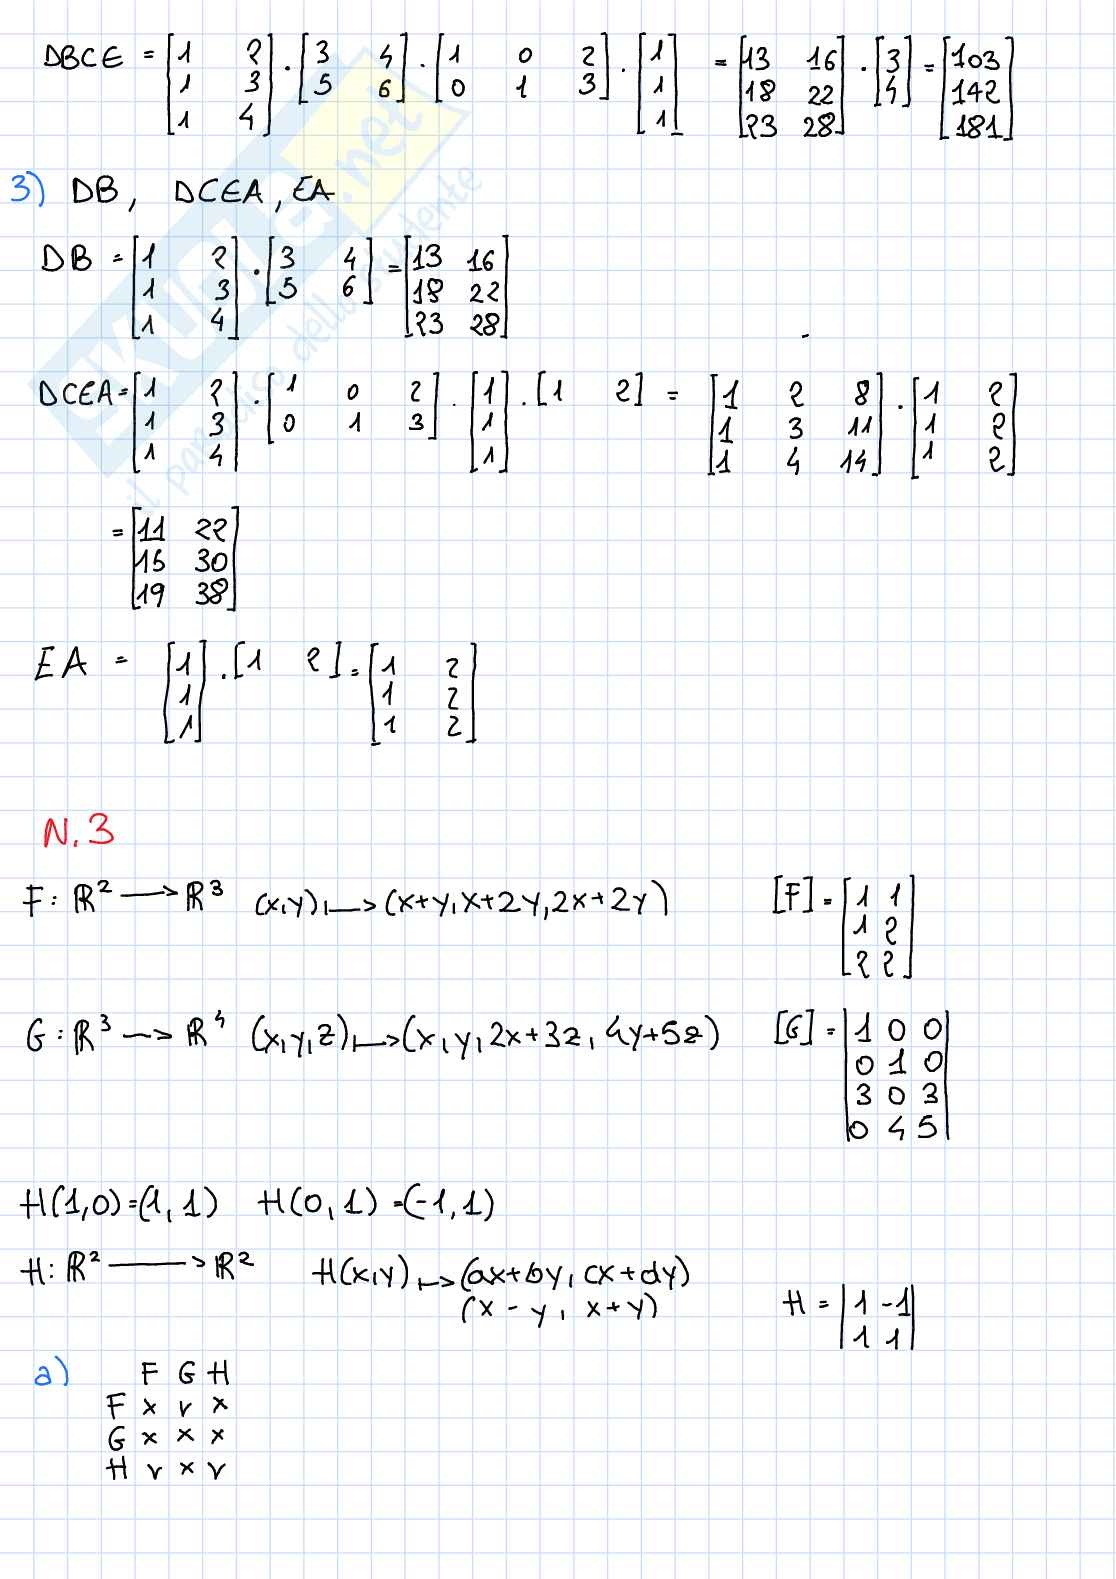 DBCE = [1 2; 1 3; 1 4] · [3 4; 5 6] · [1 0 2; 0 1 3] · [1; 1; 1] = [13 16; 18 22; 23 28] · [3; 4] = [103; 142; 181]
3) DB, DCEA, EA
DB = [1 2; 1 3; 1 4] · [3 4; 5 6] = [13 16; 18 22; 23 28]
DCEA = [1 2; 1 3; 1 4] · [1 0 2; 0 1 3] · [1; 1; 1] · [1 2] = [1 2 8; 1 3 11; 1 4 14] · [1 2; 1 2; 1 2]
= [11 22; 15 30; 19 38]
EA = [1; 1; 1] · [1 2] = [1 2; 1 2; 1 2]
N. 3
F: ℝ² → ℝ³ (x,y) ↦ (x+y, x+2y, 2x+2y) [F] = [1 1; 1 2; 2 2]
G: ℝ³ → ℝ⁴ (x,y,z) ↦ (x, y, 2x+3z, 4y+5z) [G] = |1 0 0; 0 1 0; 3 0 3; 0 4 5|
H(1,0)=(1,1) H(0,1)=(-1,1)
H: ℝ² → ℝ² H(x,y) ↦ (ax+by, cx+dy)
(x-y, x+y) H = |1 -1; 1 1|
a) F G H
F x v x
G x x x
H v x v
SKUOLA.net
il paradiso dello studente